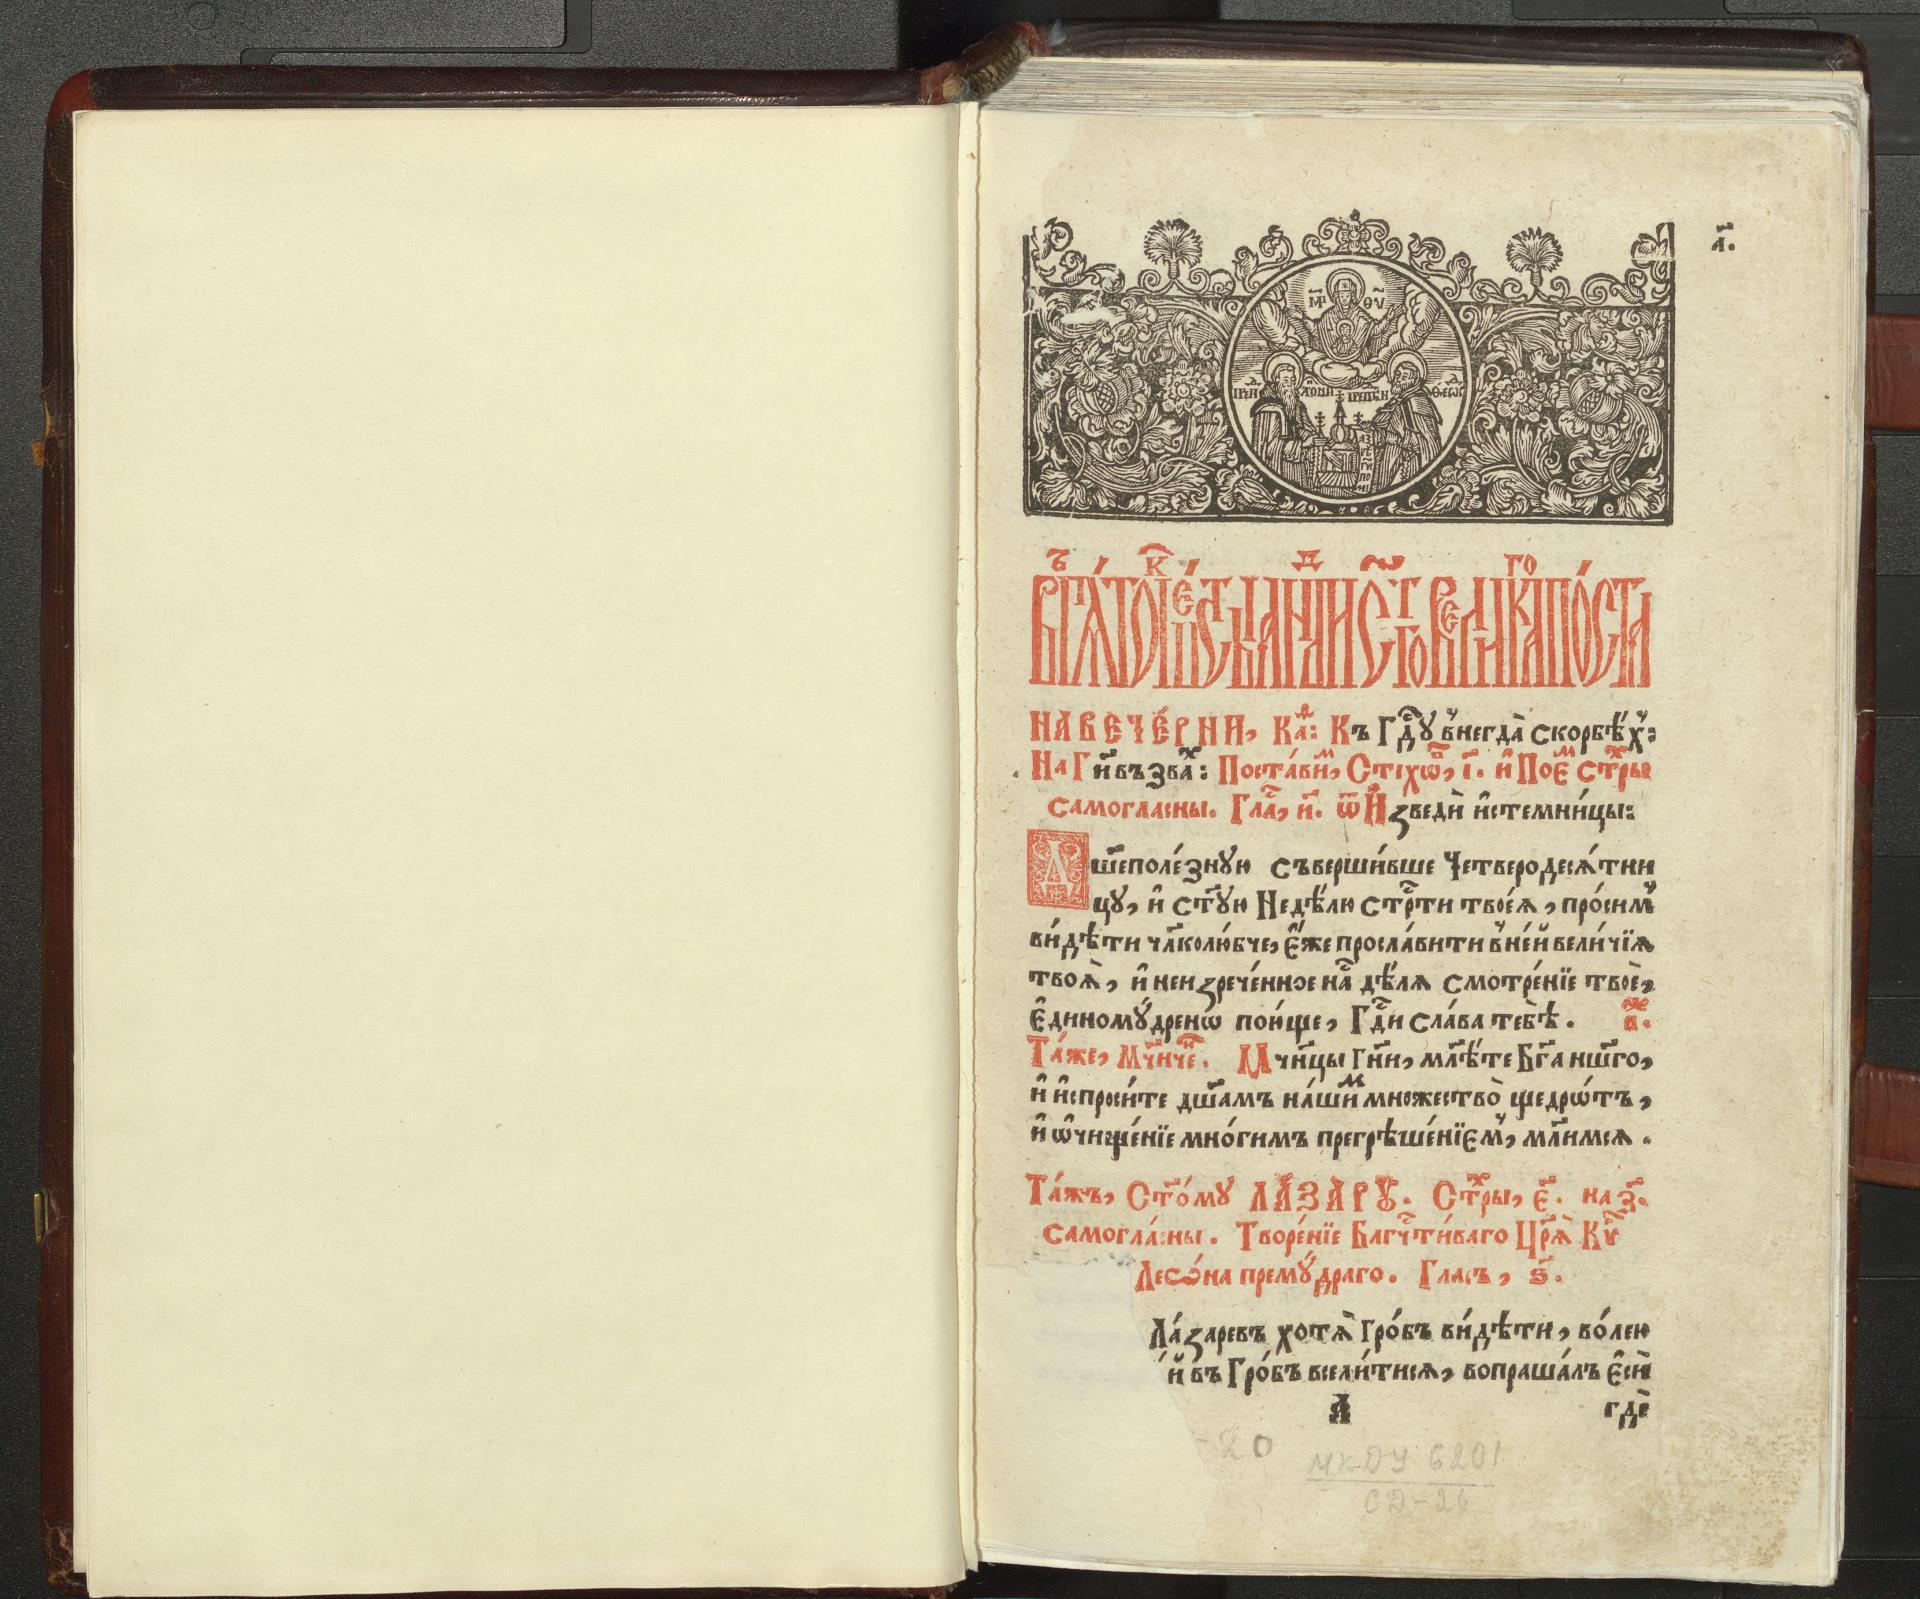 а҃.
М҃Р Ѳ҃Ѵ
Въ пѧто́къ шесты́ѧ нед҃ли ст҃го вели́каго поста̀
НА ВЕЧЕ́РНИ, Каѳ҃: Къ Гдⷭ҇ꙋ в̾негда̀ скорбѣ́х̾:
На Гдⷭ҇и въззва́хъ: Поста́вим̾, Стїхѡ́въ, і҃. и҆ Пое́мъ стхⷬ҇ы
самогласны. Гла́съ, и҃. ѿ И҆зведѝ и҆с темни́цы:
Дш҃еполе́знꙋю съверши́вше Четверодесѧ́тни
цꙋ, и҆ ст҃ꙋю Недѣ́лю стрⷭ҇ти твоеѧ̀, про́сим̾
ви́дѣти чл҃колю́бче, Е҆́же просла́вити в̾не́й вели́чїѧ
твоѧ̀, и҆ неизрече́нное на́съ дѣ́лѧ смотре́нїе твоѐ,
Е҆диномꙋ́дренѡ пою́ще, Гдⷭ҇и сла́ва тебѣ̀. в҃.
Та́же, Мч҃нче. Мч҃нцы Гдⷭ҇ни, мл҃ѣте Бг҃а на́шего,
и҆ и҆спроси́те дш҃амъ на́шим мно́жество̀ щедрѡ́тъ,
и҆ ѡ҆чище́нїе мно́гимъ прегрѣше́нїем̾, мл҃имсѧ.
Та́жъ, Ст҃о́мꙋ ЛА́ЗАРꙊ. Стхⷬ҇ы, є҃. на з҃.
самогла́сны. Творе́нїе Благчⷭ҇ти́ваго Цр҃ѧ̀ Кѵ́ръ
Лео́на премꙋ́драго. Гласъ, ѕ҃.
Ла́заревъ хотѧ̀ Гро́бъ ви́дѣти, во́лею
и҆́ въ Гро́бъ всели́тисѧ, вопраша́лъ Е҆сѝ
А гдѐ
20
МКДУ 6201
СД-26